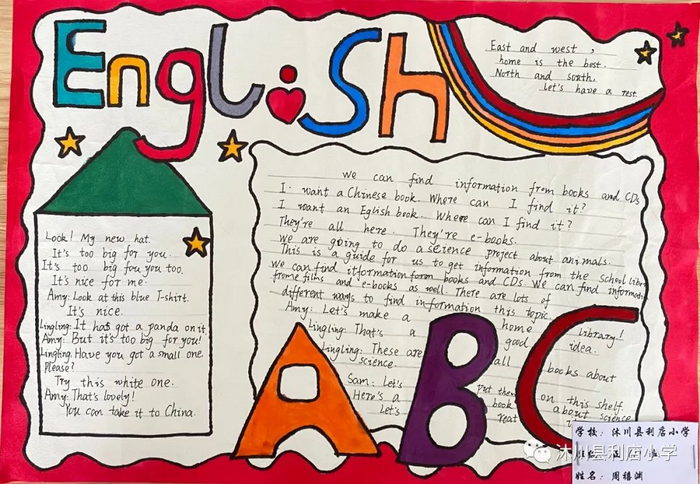 English
East and west,
home is the best.
North and south,
Let's have a rest
Look! My new hat.
It's too big for you.
It's too big fou you too.
It's nice for me.
Amy: Look at this blue T-shirt.
It's nice.
Lingling: It has got a panda on it
Amy: But it's too big for you!
Lingling: Have you got a small one
Please?
Try this white one.
Amy: That's lovely!
You can take it to China.
we can find information from books and CDs
I want a Chinese book. Where can I find it?
I want an Eglish book. Where can I find it?
They're all here. They're e-books.
we are going to do a science project about animals.
This is a guide for us to get information from the School
we can find itformation form books and CDs We can find informatio
frome films and e-books as well. There are lots of
different ways to find information this topic.
Amy: Let's make a home library!
Lingling: That's a good idea.
Lingling: These are all books about
science.
Sam: Let's put them on this shelf
Here's a book about science
Let's
ABC
学校：沐川县利店小学
姓名：周禧渊
沐川县利店小学